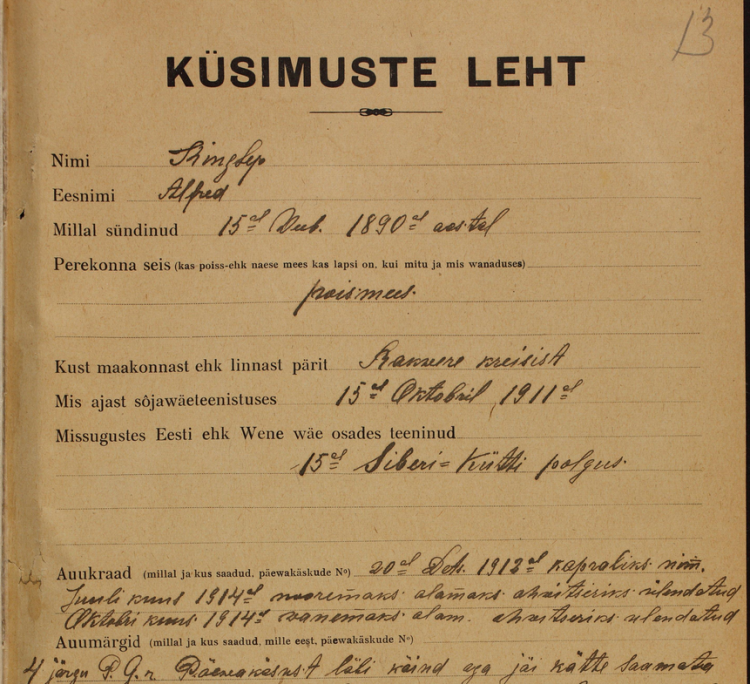 13
KÜSIMUSTE LEHT
Nimi Kingsep
Eesnimi Alfred
Millal sündinud 15el Veeb. 1890el aastal
Perekonna seis (kas poiss-ehk naese mees kas lapsi on, kui mitu ja mis wanaduses)
poismees.
Kust maakonnast ehk linnast pärit Rakvere kreisist
Mis ajast sôjawäeteenistuses 15el Oktobril 1911el
Missugustes Eesti ehk Wene wäe osades teeninud
15el Siberi= Kütti polgus.
Auukraad (millal ja kus saadud, päewakäskude No) 20el Dets. 1912el kapraliks nim.
Juuli kuus 1914el nooremaks alamaks ohvitseriks ülendatud
Oktobri kuus 1914el vanemaks alam. ohvitseriks ülendatud
Auumärgid (millal ja kus saadud, mille eest, päewakäskude No)
4 järgu P. G. r Päevakäsust läbi käind aga jäi kätte saamata